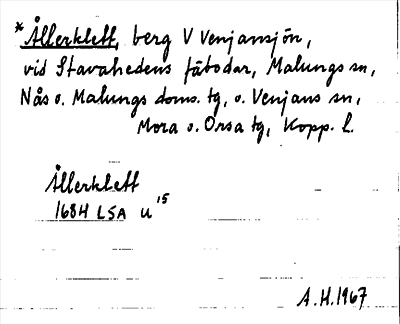 * Ållerklett, berg V Venjansjön,
vid Stavahedens fäbodar, Malungs sn,
Nås o. Malungs doms. tg, o. Venjans sn,
Mora o. Orsa tg, Kopp. l.
Ållerklett
1684 LSA U 15
A.H. 1967